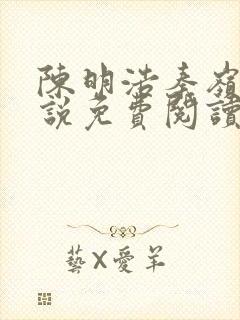 陳明浩秦嶺
說免費閱讀
藝X愛羊